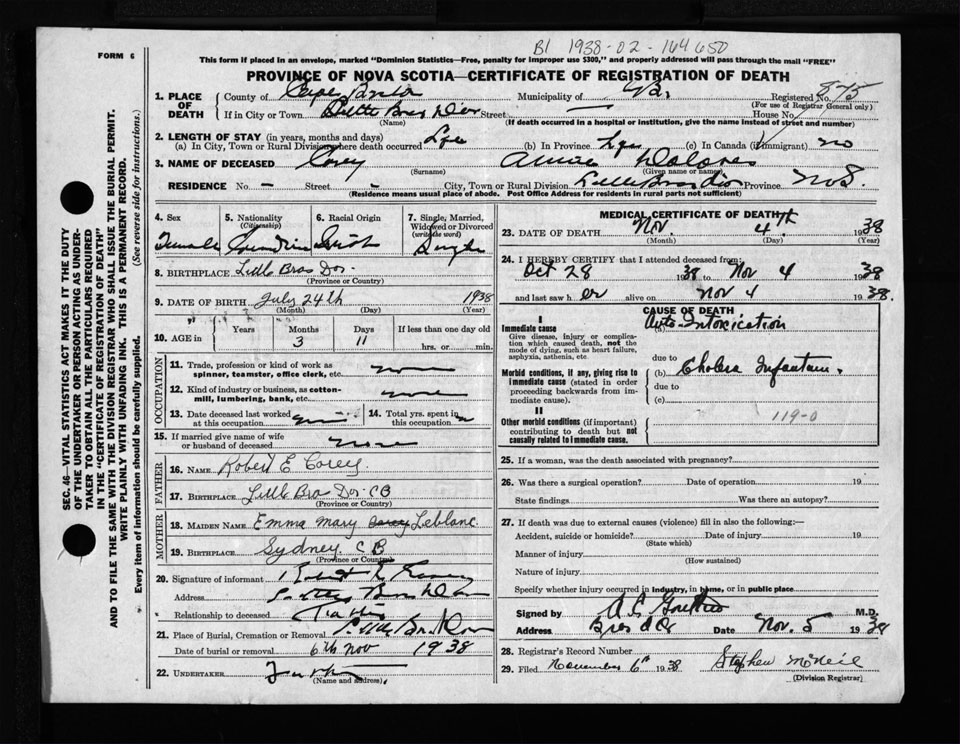 B1 1938-02-164650
FORM 6
This form if placed in an envelope, marked "Dominion Statistics—Free, penalty for improper use $300," and properly addressed will pass through the mail "FREE"
PROVINCE OF NOVA SCOTIA—CERTIFICATE OF REGISTRATION OF DEATH
SEC. 46—VITAL STATISTICS ACT MAKES IT THE DUTY
OF THE UNDERTAKER OR PERSON ACTING AS UNDER-
TAKER TO OBTAIN ALL THE PARTICULARS REQUIRED
IN THE "CERTIFICATE OF REGISTRATION OF DEATH"
AND TO FILE THE SAME WITH THE DIVISION REGISTRAR WHO SHALL ISSUE THE BURIAL PERMIT.
WRITE PLAINLY WITH UNFADING INK. THIS IS A PERMANENT RECORD.
Every item of information should be carefully supplied. (See reverse side for instructions.)
1. PLACE OF DEATH County of Cape Breton Municipality of Registered No. 875
(For use of Registrar General only)
If in City or Town Little Bras Dor Street House No.
(Name) (If death occurred in a hospital or institution, give the name instead of street and number)
2. LENGTH OF STAY (in years, months and days)
(a) In City, Town or Rural Division where death occurred Life (b) In Province Life (c) In Canada (if immigrant) no
3. NAME OF DECEASED Corey Annie Dolores
(Surname) (Given name or names)
RESIDENCE No. – Street – City, Town or Rural Division Little Bras Dor Province N.S.
(Residence means usual place of abode. Post Office Address for residents in rural parts not sufficient)
4. Sex Female
5. Nationality (Citizenship) Canadian
6. Racial Origin Irish
7. Single, Married, Widowed or Divorced (write the word) Single
8. BIRTHPLACE Little Bras Dor.
(Province or Country)
9. DATE OF BIRTH July 24th 1938
(Month) (Day) (Year)
10. AGE in Years Months Days If less than one day old
3 11 hrs. or min.
OCCUPATION
11. Trade, profession or kind of work as
spinner, teamster, office clerk, etc. none
12. Kind of industry or business, as cotton-
mill, lumbering, bank, etc. none
13. Date deceased last worked
at this occupation
14. Total yrs. spent in
this occupation
15. If married give name of wife
or husband of deceased none
FATHER
16. NAME Robert E Corey
17. BIRTHPLACE Little Bras Dor. CB
(Province or Country)
MOTHER
18. MAIDEN NAME Emma Mary Leblanc
19. BIRTHPLACE Sydney CB
(Province or Country)
20. Signature of informant Robert E Corey
Address Little Bras Dor
Relationship to deceased Father
21. Place of Burial, Cremation or Removal Little Bras Dor
Date of burial or removal 6th Nov 1938
22. UNDERTAKER
(Name and address)
MEDICAL CERTIFICATE OF DEATH
23. DATE OF DEATH Nov. 4th 1938
(Month) (Day) (Year)
24. I HEREBY CERTIFY that I attended deceased from:
Oct 28 1938 to Nov 4 1938
and last saw her alive on Nov 4 1938.
CAUSE OF DEATH
I
Immediate cause (a) Auto-Intoxication
Give disease, injury or complica-
tion which caused death, not the
mode of dying, such as heart failure,
asphyxia, asthenia, etc.
due to
Morbid conditions, if any, giving rise to
immediate cause (stated in order
proceeding backwards from im-
mediate cause).
(b) Cholera Infantum.
due to
(c)
II
Other morbid conditions (if important)
contributing to death but not
causally related to immediate cause.
119-0
25. If a woman, was the death associated with pregnancy?
26. Was there a surgical operation? Date of operation 19
State findings Was there an autopsy?
27. If death was due to external causes (violence) fill in also the following:—
Accident, suicide or homicide? Date of injury 19
(State which)
Manner of injury
(How sustained)
Nature of injury
Specify whether injury occurred in industry, in home, or in public place
Signed by M.D.
Address Bras d'Or Date Nov. 5 1938
28. Registrar's Record Number
29. Filed November 6th 1938 Stephen McNeil
(Division Registrar)